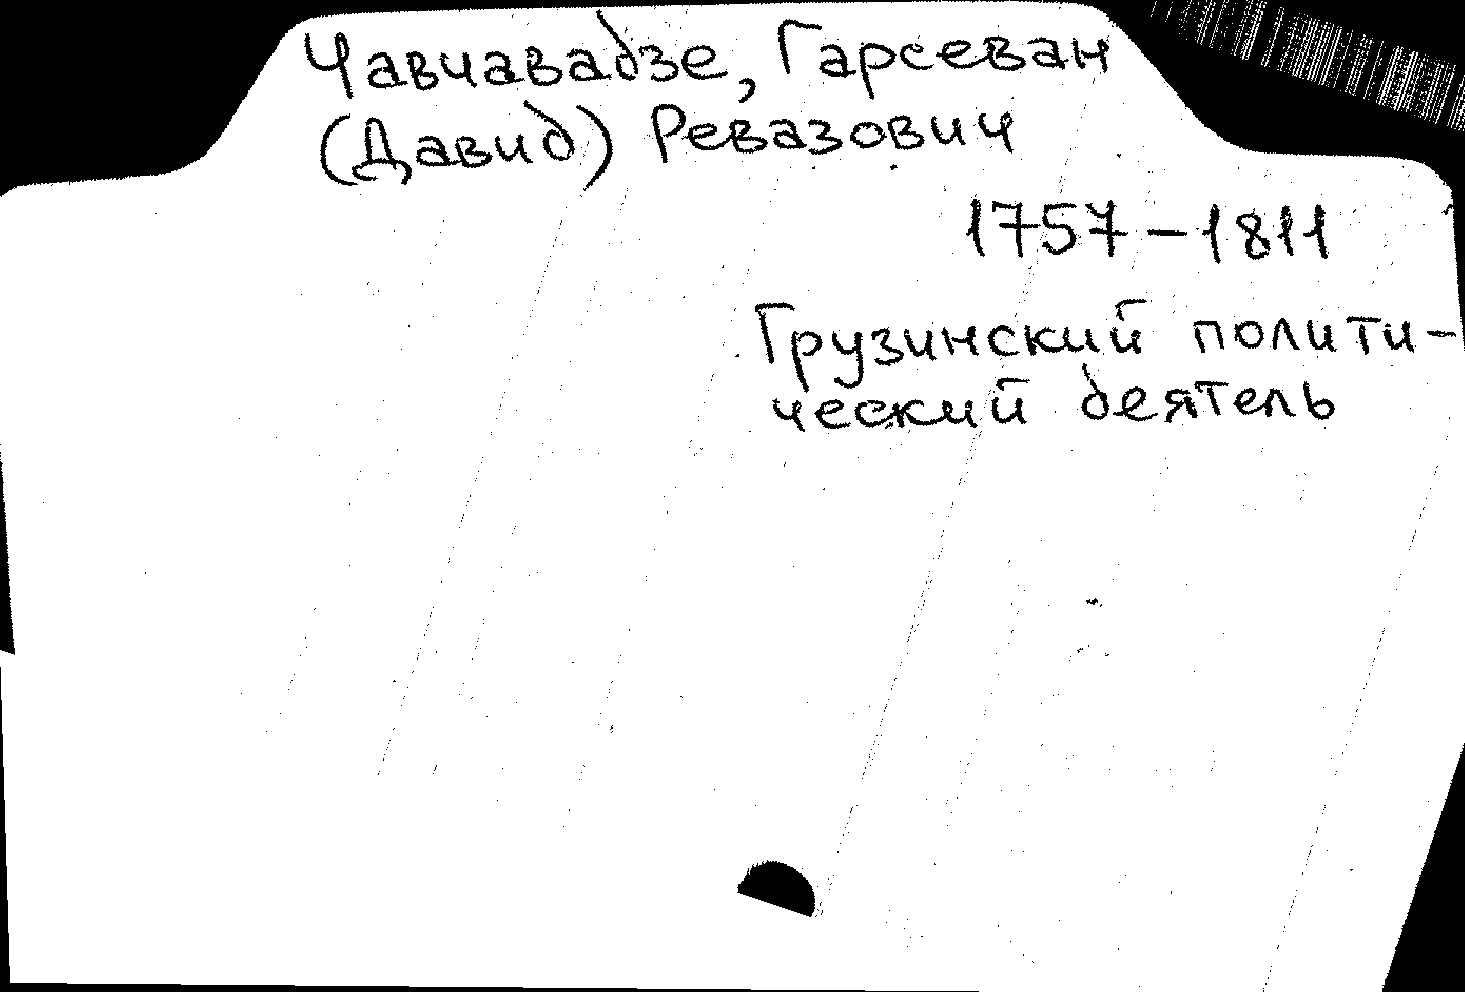 Чавчавадзе, Гарсеван
(Давид) Ревазович
1757-1811
Грузинский полити-
ческий деятель